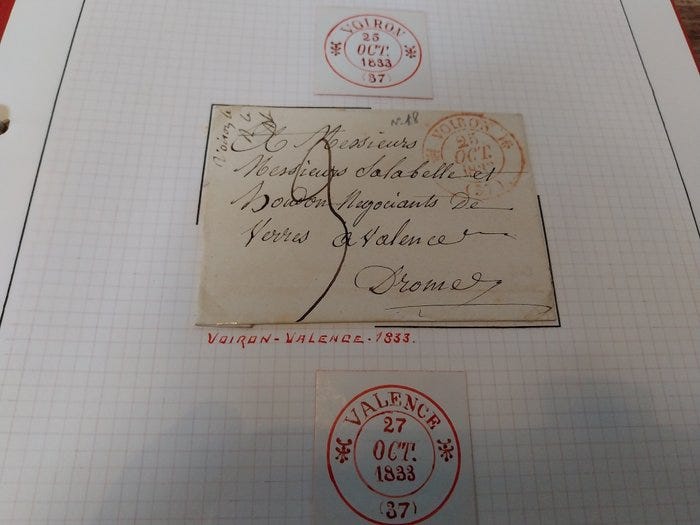 VOIRON
25
OCT.
1833
(37)
n. 18
A Messieurs
Messieurs Salabelle et
Boudon Negociants De
Verres a Valence
Drome
VOIRON
25
OCT.
1833
(37)
VOIRON - VALENCE . 1833.
VALENCE
27
OCT.
1833
(37)